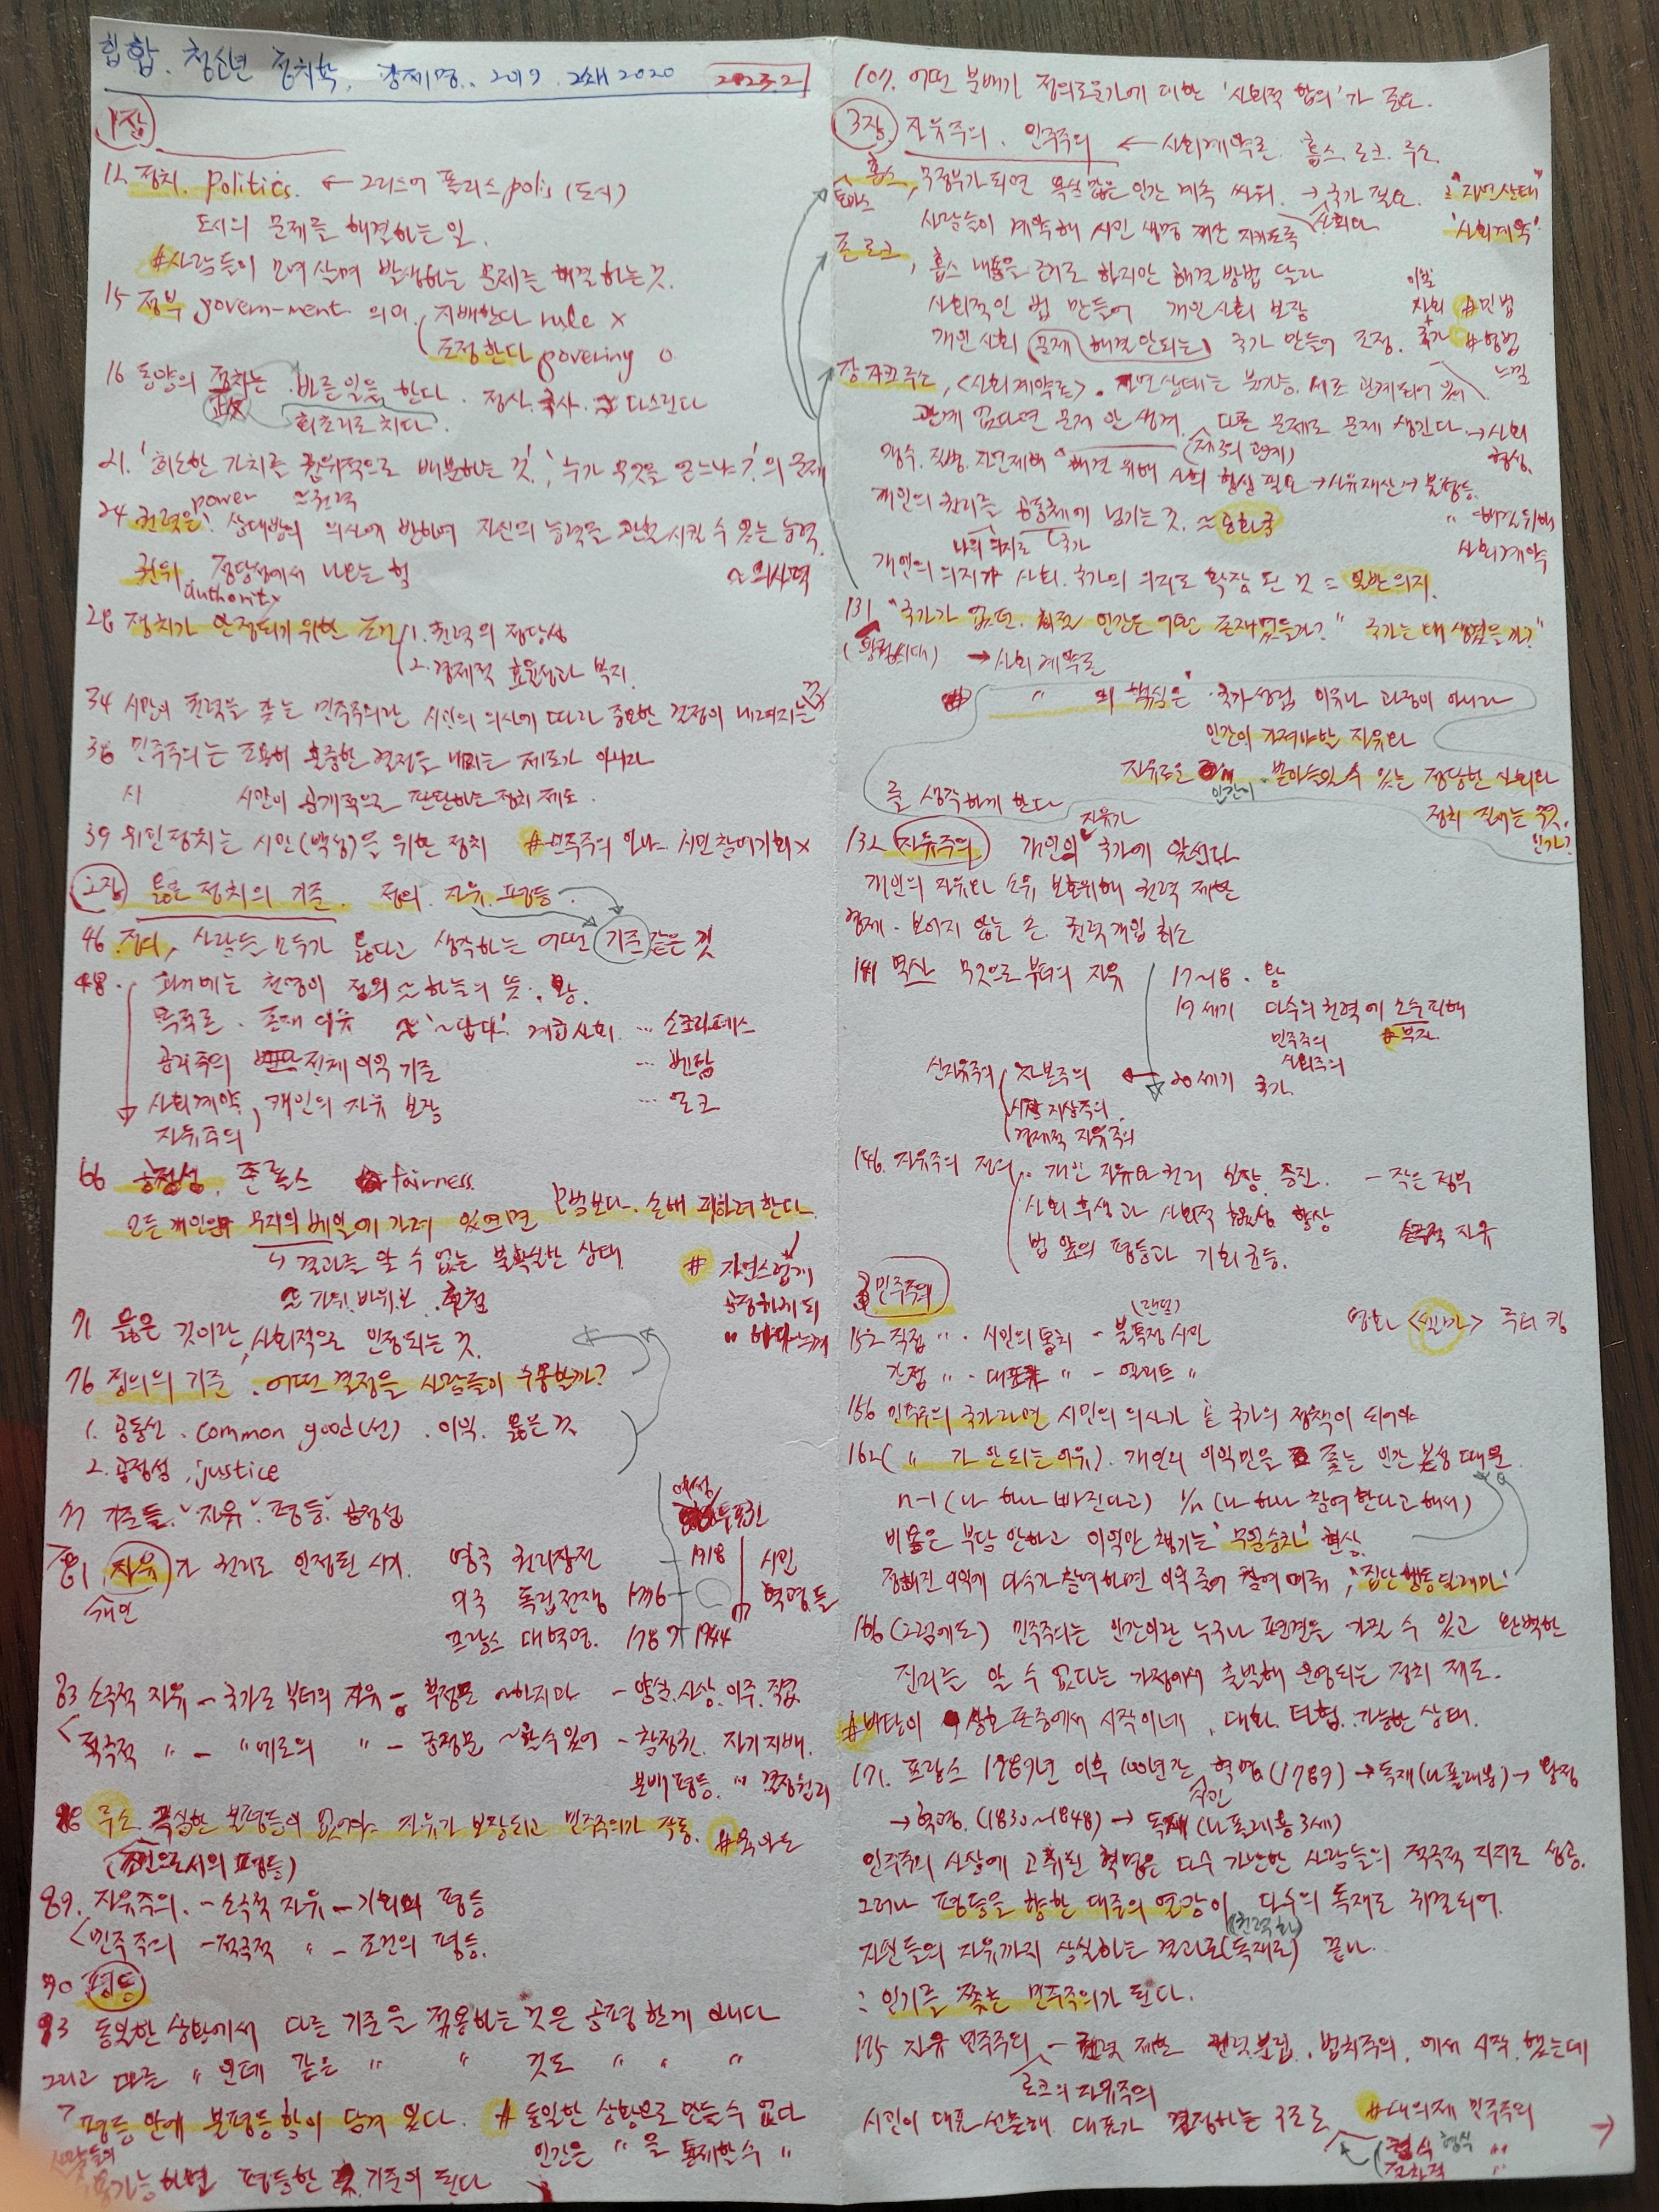 힙합. 청소년 정치학. 강제명.. 2019. 2쇄 2020 2023.2
1장
12 정치. politics. ← 그리스어 폴리스 polis (도시)
도시의 문제를 해결하는 일.
#사람들이 모여 살며 발생하는 문제를 해결하는 것.
15 정부 govern-ment 의미 지배한다 rule x
조정한다 govering o
16 동양의 정치는 바른 일을 한다. 정사. 국사. 다스린다
회초리로 치다.
21. '희소한 가치를 권위적으로 배분하는 것', '누가 무엇을 얻느냐?'의 문제
power
24 권력은 상대방의 의사에 반하여 자신의 능력을 관철시킬 수 있는 능력.
권위, 정당성에서 나오는 힘 ~의사역
authority
28 정치가 안정되기 위한 조건 1. 권력의 정당성
2. 경제적 효율성과 복지.
34 시민이 권력을 갖는 민주주의란 시민의 의사에 따라 중요한 결정이 내려지는
38 민주주의는 조용히 결정을 내리는 제도가 아니라
시민이 공개적으로 판단하는 정치 제도.
39 위민정치는 시민(백성)을 위한 정치 #민주주의 아냐. 시민참여기회 x
2장 옳은 정치의 기준. 정의. 자유. 평등
46 정의, 사람들 모두가 옳다고 생각하는 어떤 기준 같은 것
48. 과거에는 천명이 정의 ~ 하늘의 뜻. 왕.
목적론. 존재 이유 '~답다' 계급사회 … 소크라테스
공리주의 전체 이익 기준 … 벤담
사회계약, 개인의 자유 보장 … 로크
자유주의
66 공정성. 존 롤스 fairness.
모든 개인은 무지의 베일에 가려 있으면 모험보다. 손해 피하려 한다.
↳ 결과를 알 수 없는 불확실한 상태
가위. 바위. 보. 추첨
# 자연스럽게
공정하게 되
71 옳은 것이란, 사회적으로 인정되는 것.
76 정의의 기준. 어떤 결정을 사람들이 수용할까?
1. 공동선. common good(선). 이익. 옳은 것
2. 공정성, justice
77 기준들. '자유' '평등' 공정성
81 자유가 권리로 인정된 시기 영국 권리장전 1918 시민
개인 미국 독립전쟁 1776 혁명들
프랑스 대혁명. 1789 1944
여성 투표권
83 소극적 자유 - 국가로부터의 자유 - 부정문 ~하지마 - 양심. 사상. 이주. 직업
적극적 〃 - 〃 에로의 〃 - 긍정문 ~할 수 있어 - 참정권. 자기지배.
분배 평등. 〃 결정원리
88 루소. 극심한 불평등이 없어야 자유가 보장되고 민주주의가 작동. #
(시민으로서의 평등)
89. 자유주의. - 소극적 자유 - 기회의 평등
민주주의 - 적극적 〃 - 조건의 평등.
90 평등
93 동일한 상황에서 다른 기준을 적용하는 것은 공평한게 아니다
그리고 다른 〃 인데 같은 〃 〃 것도 〃 〃 〃
> 평등 안에 불평등함이 담겨 있다. # 동일한 상황으로 만들 수 없다
인간은 〃 을 통제할 수 〃
사람들의
용가능하면 평등한 기준이 된다
107. 어떤 분배가 정의로운가에 대한 '사회적 합의'가 중요.
3장 자유주의. 민주주의 ← 사회계약론. 홉스. 로크. 루소.
홉스, 무정부가 되면 욕심 많은 인간 계속 싸워. → 국가 필요. "자연상태"
토마스 사람들이 계약해 시민 생명 재산 지키도록 '사회계약'
존 로크, 홉스 내용을 근거로 하지만 해결 방법 달라
사회적인 법 만들어 개인 사회 보장 #민법
개인 사회 문제 해결 안되는 국가 만들어 조정. 국가 #형법
느낌
장 자크 루소, <사회계약론>. 자연상태는 불가능. 서로 관계되어
관계 없다면 문제 안 생겨. 다른 문제로 문제 생긴다. → 사회
(제3의 관계) 형성.
해결 위해 사회 형성 필요 → 사유재산 → 불평등.
개인의 권리를 공동체에 넘기는 것. ~ 공화국 〃 해결위해
나의 의지로 국가 사회계약
개인의 의지가 사회. 국가의 의지로 확장 된 것 = 일반의지.
131 "국가가 없던. 최초 인간은 어떤 존재였을까?" "국가는 왜 생겼을까?"
(왕정시대) → 사회계약론
〃 의 핵심은 국가성립 이유나 과정이 아니라
인간이 가져야할 자유와
자유로운 인간이 받아들일 수 있는 정당한 사회와
를 생각하게 한다 정치 질서는 무엇
인가?
자유가
132 자유주의 개인의 국가에 앞선다
개인의 자유와 소유 보호위해 권력 제한
경제. 보이지 않는 손. 권력개입 최소
141 역사 무엇으로부터의 자유 17~18. 왕
19세기 다수의 권력에 소수피해
민주주의 #부자.
사회주의
신자유주의 자본주의 ← 20세기 국가
시장 지상주의.
경제적 자유주의
146. 자유주의 정의.. 개인 자유와 권리 보장. 증진. - 작은 정부
사회 후생과 사회적 효율성 향상 소극적 자유
법 앞의 평등과 기회 균등.
민주주의
(랜덤)
152 직접 〃. 시민의 통치 - 불특정 시민 영화 <셀마> 루터 킹
간접 〃. 대표 〃 - 엘리트 〃
156 민주주의 국가라면 시민의 의사가 곧 국가의 정책이 되어야
162 ( 〃 가 안되는 이유). 개인의 이익만을 쫓는 인간 본성 때문.
n-1 (나 하나 빠진다고) 1/n (나 하나 참여한다고 해서)
비용은 부담 안하고 이익만 챙기는 '무임승차' 현상.
정해진 이익에 다수가 참여하면 이익 줄어 참여 미뤄, '집단행동 딜레마'
166 (그럼에도) 민주주의는 인간이란 누구나 편견을 가질 수 있고 완벽한
진리를 알 수 없다는 가정에서 출발해 운영되는 정치 제도.
#바탕이 상호 존중에서 시작이네, 대화. 타협. 가능한 상태.
171. 프랑스 1789년 이후 100년간 혁명(1789) → 독재(나폴레옹) → 왕정
시민
→ 혁명. (1830~1848) → 독재(나폴레옹 3세)
민주주의 사상에 고취된 혁명은 다수 가난한 사람들의 적극적 지지로 성공.
그러나 평등을 향한 대중의 열광이 다수의 독재로 귀결되어.
(권력화)
자신들의 자유까지 상실하는 결과로(독재로) 끝나.
: 인기를 쫓는 민주주의가 된다.
175 자유 민주주의 - 권력 제한 권력분립. 법치주의. 에서 시작 했는데
로크의 자유주의
시민이 대표 선출해. 대표가 결정하는 구조로 #대의제 민주주의 →
형식 〃
절차적 〃